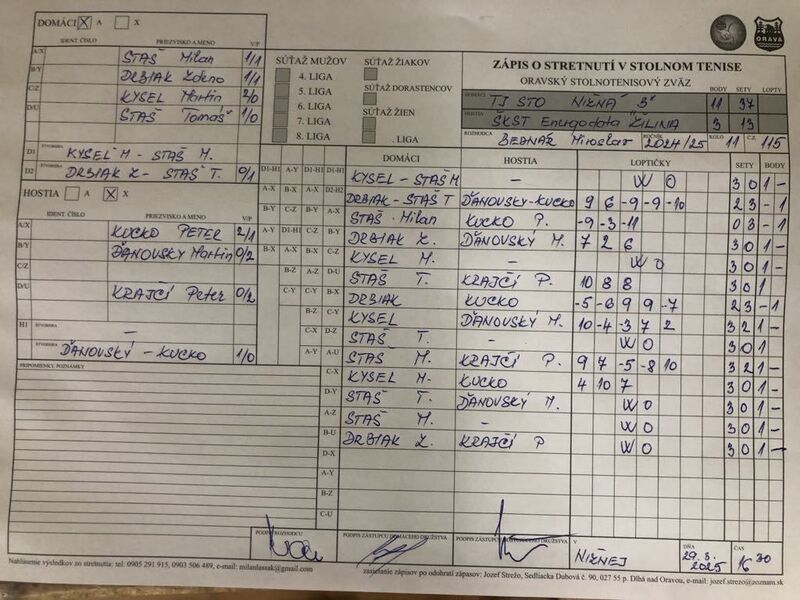 DOMÁCI X A X
IDENT. ČÍSLO PRIEZVISKO A MENO V/P
A/X STAŠ Milan 1/1
B/Y DRBIAK Zdeno 1/1
C/Z KYSEL Martin 2/0
D/U STAŠ Tomaš 1/0
D1 ŠTVORHRA KYSEL M - STAŠ M.
D2 ŠTVORHRA DRBIAK Z - STAŠ T. 0/1
HOSTIA A X X
IDENT. ČÍSLO PRIEZVISKO A MENO V/P
A/X KUCKO PETER 2/1
B/Y ĎANOVSKÝ Martin 0/2
C/Z
D/U KRAJČÍ Peter 0/2
H1 ŠTVORHRA -
ŠTVORHRA ĎANOVSKÝ - KUCKO 1/0
PRIPOMIENKY, POZNÁMKY
SÚŤAŽ MUŽOV
4. LIGA
5. LIGA
6. LIGA
7. LIGA
8. LIGA
SÚŤAŽ ŽIAKOV
SÚŤAŽ DORASTENCOV
SÚŤAŽ ŽIEN
. LIGA
ORAVA
ZÁPIS O STRETNUTÍ V STOLNOM TENISE
ORAVSKÝ STOLNOTENISOVÝ ZVÄZ BODY SETY LOPTY
DOMÁCI TJ STO NIŽNÁ B 11 37
HOSTIA ŠKST Energodata ŽILINA 3 13
ROZHODCA BEDNÁR Miroslav ROČNÍK 2024/25 KOLO 11 Č.Z. 115
DOMÁCI HOSTIA LOPTIČKY SETY BODY
D1-H1 A-Y D1-H1 D1-H1 KYSEL - STAŠ M - WO 3 0 1 -
A-X B-X A-X D2-H2 DRBIAK - STAŠ T ĎANOVSKÝ-KUCKO 9 6 -9 -9 -10 2 3 - 1
B-Y C-Z B-Y A-X STAŠ Milan KUCKO P. -9 -3 -11 0 3 - 1
A-Y D1-H1 C-Z B-Y DRBIAK Z. ĎANOVSKÝ M. 7 2 6 3 0 1 -
B-X A-X B-X C-Z KYSEL M. - WO 3 0 1 -
B-Z A-Z D-U STAŠ T. KRAJČÍ P. 10 8 8 3 0 1
C-Y C-Y B-X DRBIAK KUCKO -5 -6 9 9 -7 2 3 - 1
B-Z C-Y KYSEL ĎANOVSKÝ M. 10 -4 -3 7 2 3 2 1 -
C-X D-Z STAŠ T. - WO 3 0 1
A-Y A-U STAŠ M. KRAJČÍ P. 9 7 -5 -8 10 3 2 1 -
C-X KYSEL M. KUCKO 4 10 7 3 0 1 -
D-Y STAŠ T. ĎANOVSKÝ M. WO 3 0 1 -
A-Z STAŠ M. - WO 3 0 1 -
B-U DRBIAK Z. KRAJČÍ P WO 3 0 1 -
D-X
A-Y
B-Z
C-U
PODPIS ROZHODCU
PODPIS ZÁSTUPCU DOMÁCEHO DRUŽSTVA
V NIŽNEJ
DŇA 29.3. 2025
ČAS 16 30
Nahlásenie výsledkov zo stretnutia: tel: 0905 291 915, 0903 506 489, e-mail: milanlassak@gmail.com
zasielanie zápisov po odohratí zápasov: Jozef Strežo, Sedliacka Dubová č. 90, 027 55 p. Dlhá nad Oravou, e-mail: jozef.strezo@zoznam.sk